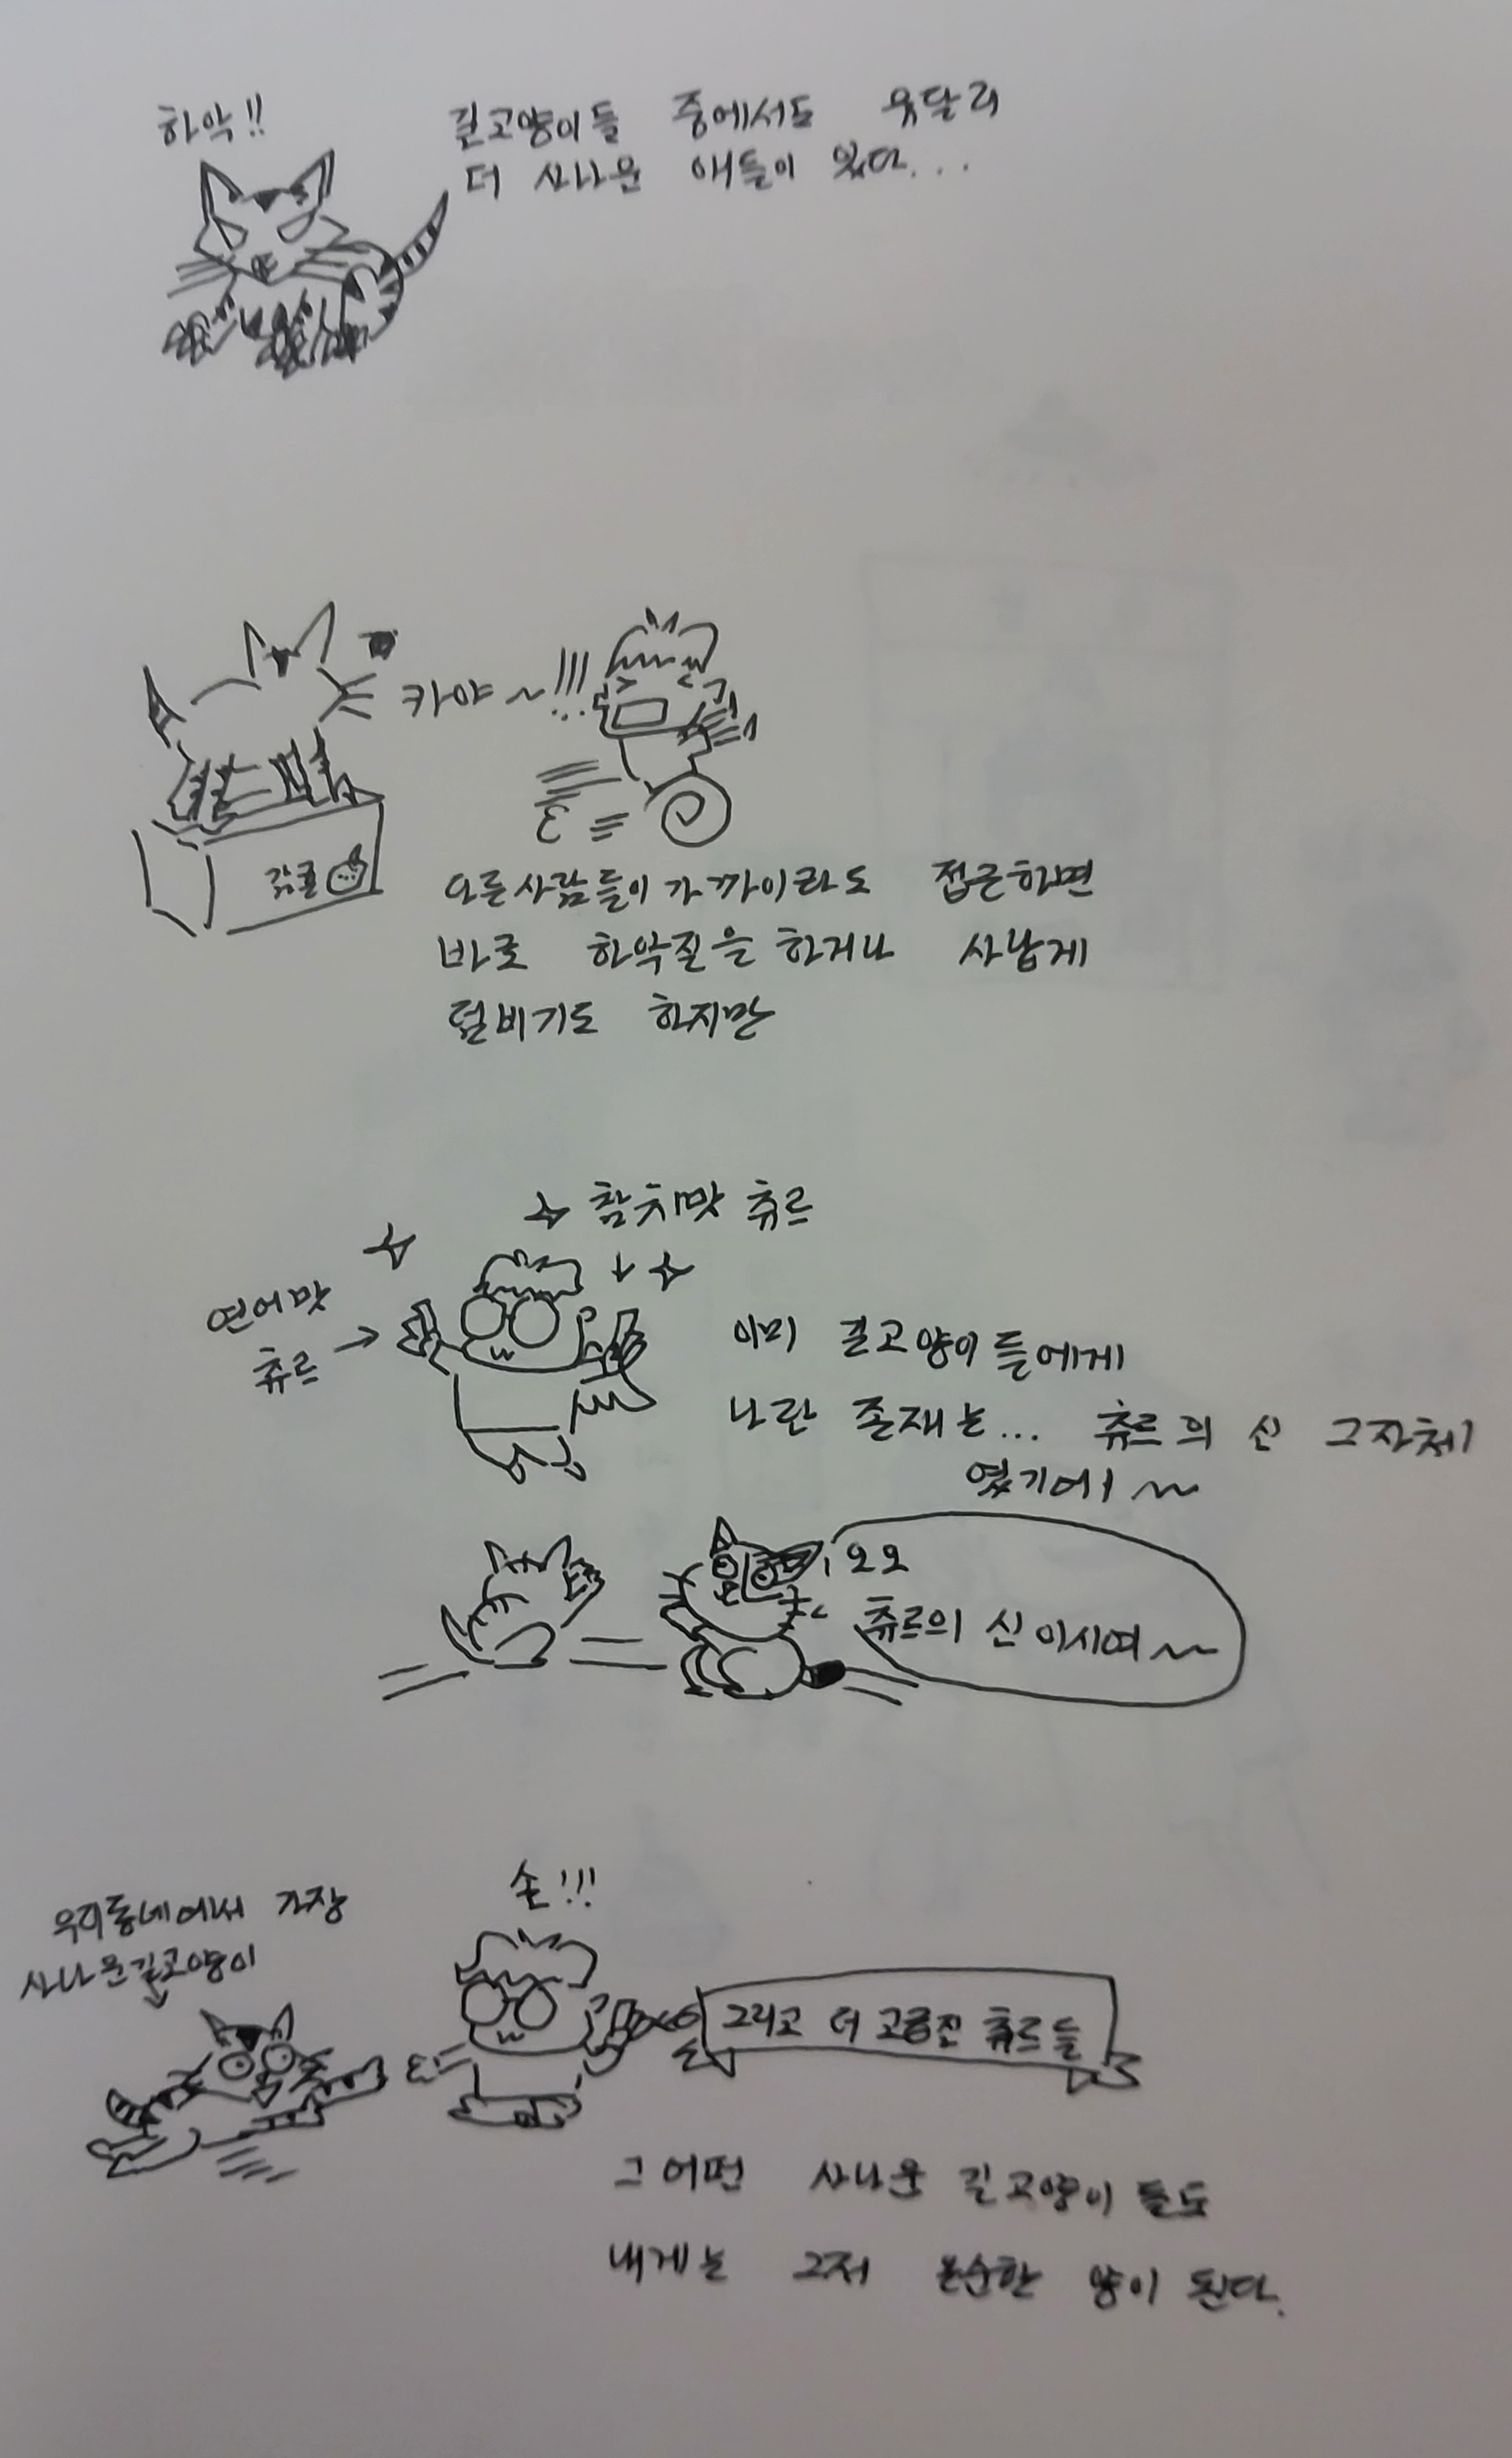 하악!!
길고양이들 중에서도 유달리
더 사나운 애들이 있다...
카야~!!!
감귤
다른사람들이 가까이라도 접근하면
바로 하악질을 하거나 사납게
덤비기도 하지만
참치맛 츄르
연어맛
츄르
이미 길고양이들에게
나란 존재는... 츄르의 신 그자체
였기에~
오오
츄르의 신이시여~
손!!!
우리동네에서 가장
사나운길고양이
그리고 더 고급진 츄르들
그어떤 사나운 길고양이들도
내게는 그저 온순한 양이 된다.